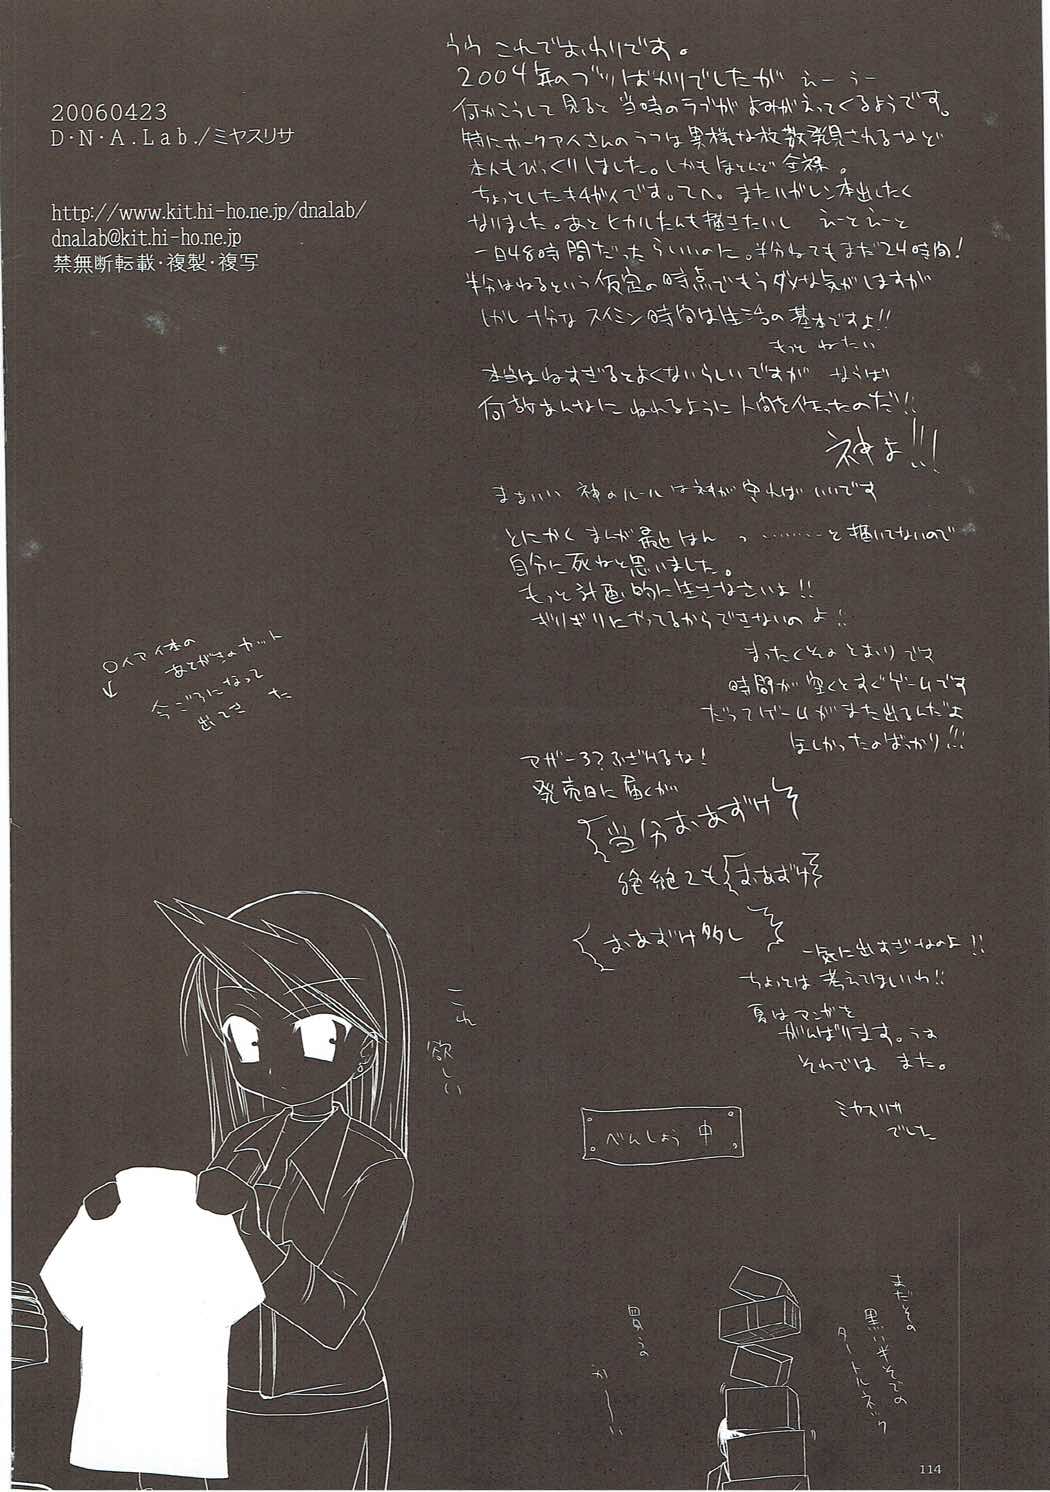 20060423
D・N・A.Lab./ミヤスリサ
http://www.kit.hi-ho.ne.jp/dnalab/
dnalab@kit.hi-ho.ne.jp
禁無断転載・複製・複写
うう これでおわりです。
2004年のブツばかりでしたが えーぅー
何かこうして見ると当時のラブがよみがえってくるようです。
特にホークアイさんのラフは異様な枚数発見されるなど
本人もびっくりしました。しかもほとんど全裸。
ちょっとしたキ4ガイです。てへ。またハガレン本出したく
なりました。あとヒカルたんも描きたいし えーとえーと
一日48時間だったらいいのに。半分ねてもまだ24時間!
半分はねるという仮定の時点でもうダメな気がしますが
しかし十分なスイミン時間は生活の基本ですよ!!
もっと ねたい
本当はねすぎるとよくないらしいですが ならば
何故あんなに ねれるように人間を作ったのだ!!
神よ!!!
まぁいい 神のルールは神が守ればいいです
とにかく まんが最近はん っ………と描いてないので
自分に死ねと思いました。
もっと計画的に生きなさいよ!!
ギリギリにやってるからできないのよ!!
まったくそのとおりです
時間が空くとすぐゲームです
だってゲームがまた出るんだよ
ほしかったのばっかり!!!
マザー3?ふざけるな!
発売日に届くが
当分おあずけ
絶絶2もおあずけ
おあずけ多し
一気に出すぎなのよ!!
ちょっとは考えてほしいわ!!
夏はマンガを
がんばります。うお
それでは また。
ミヤスリサ
でした
○イアイ本の
あとがきのカット
今ごろになって
出てきた
これ
欲しい
べんしょう中
まだその
黒い半そでの
タートルネック
買うの
かーい
114